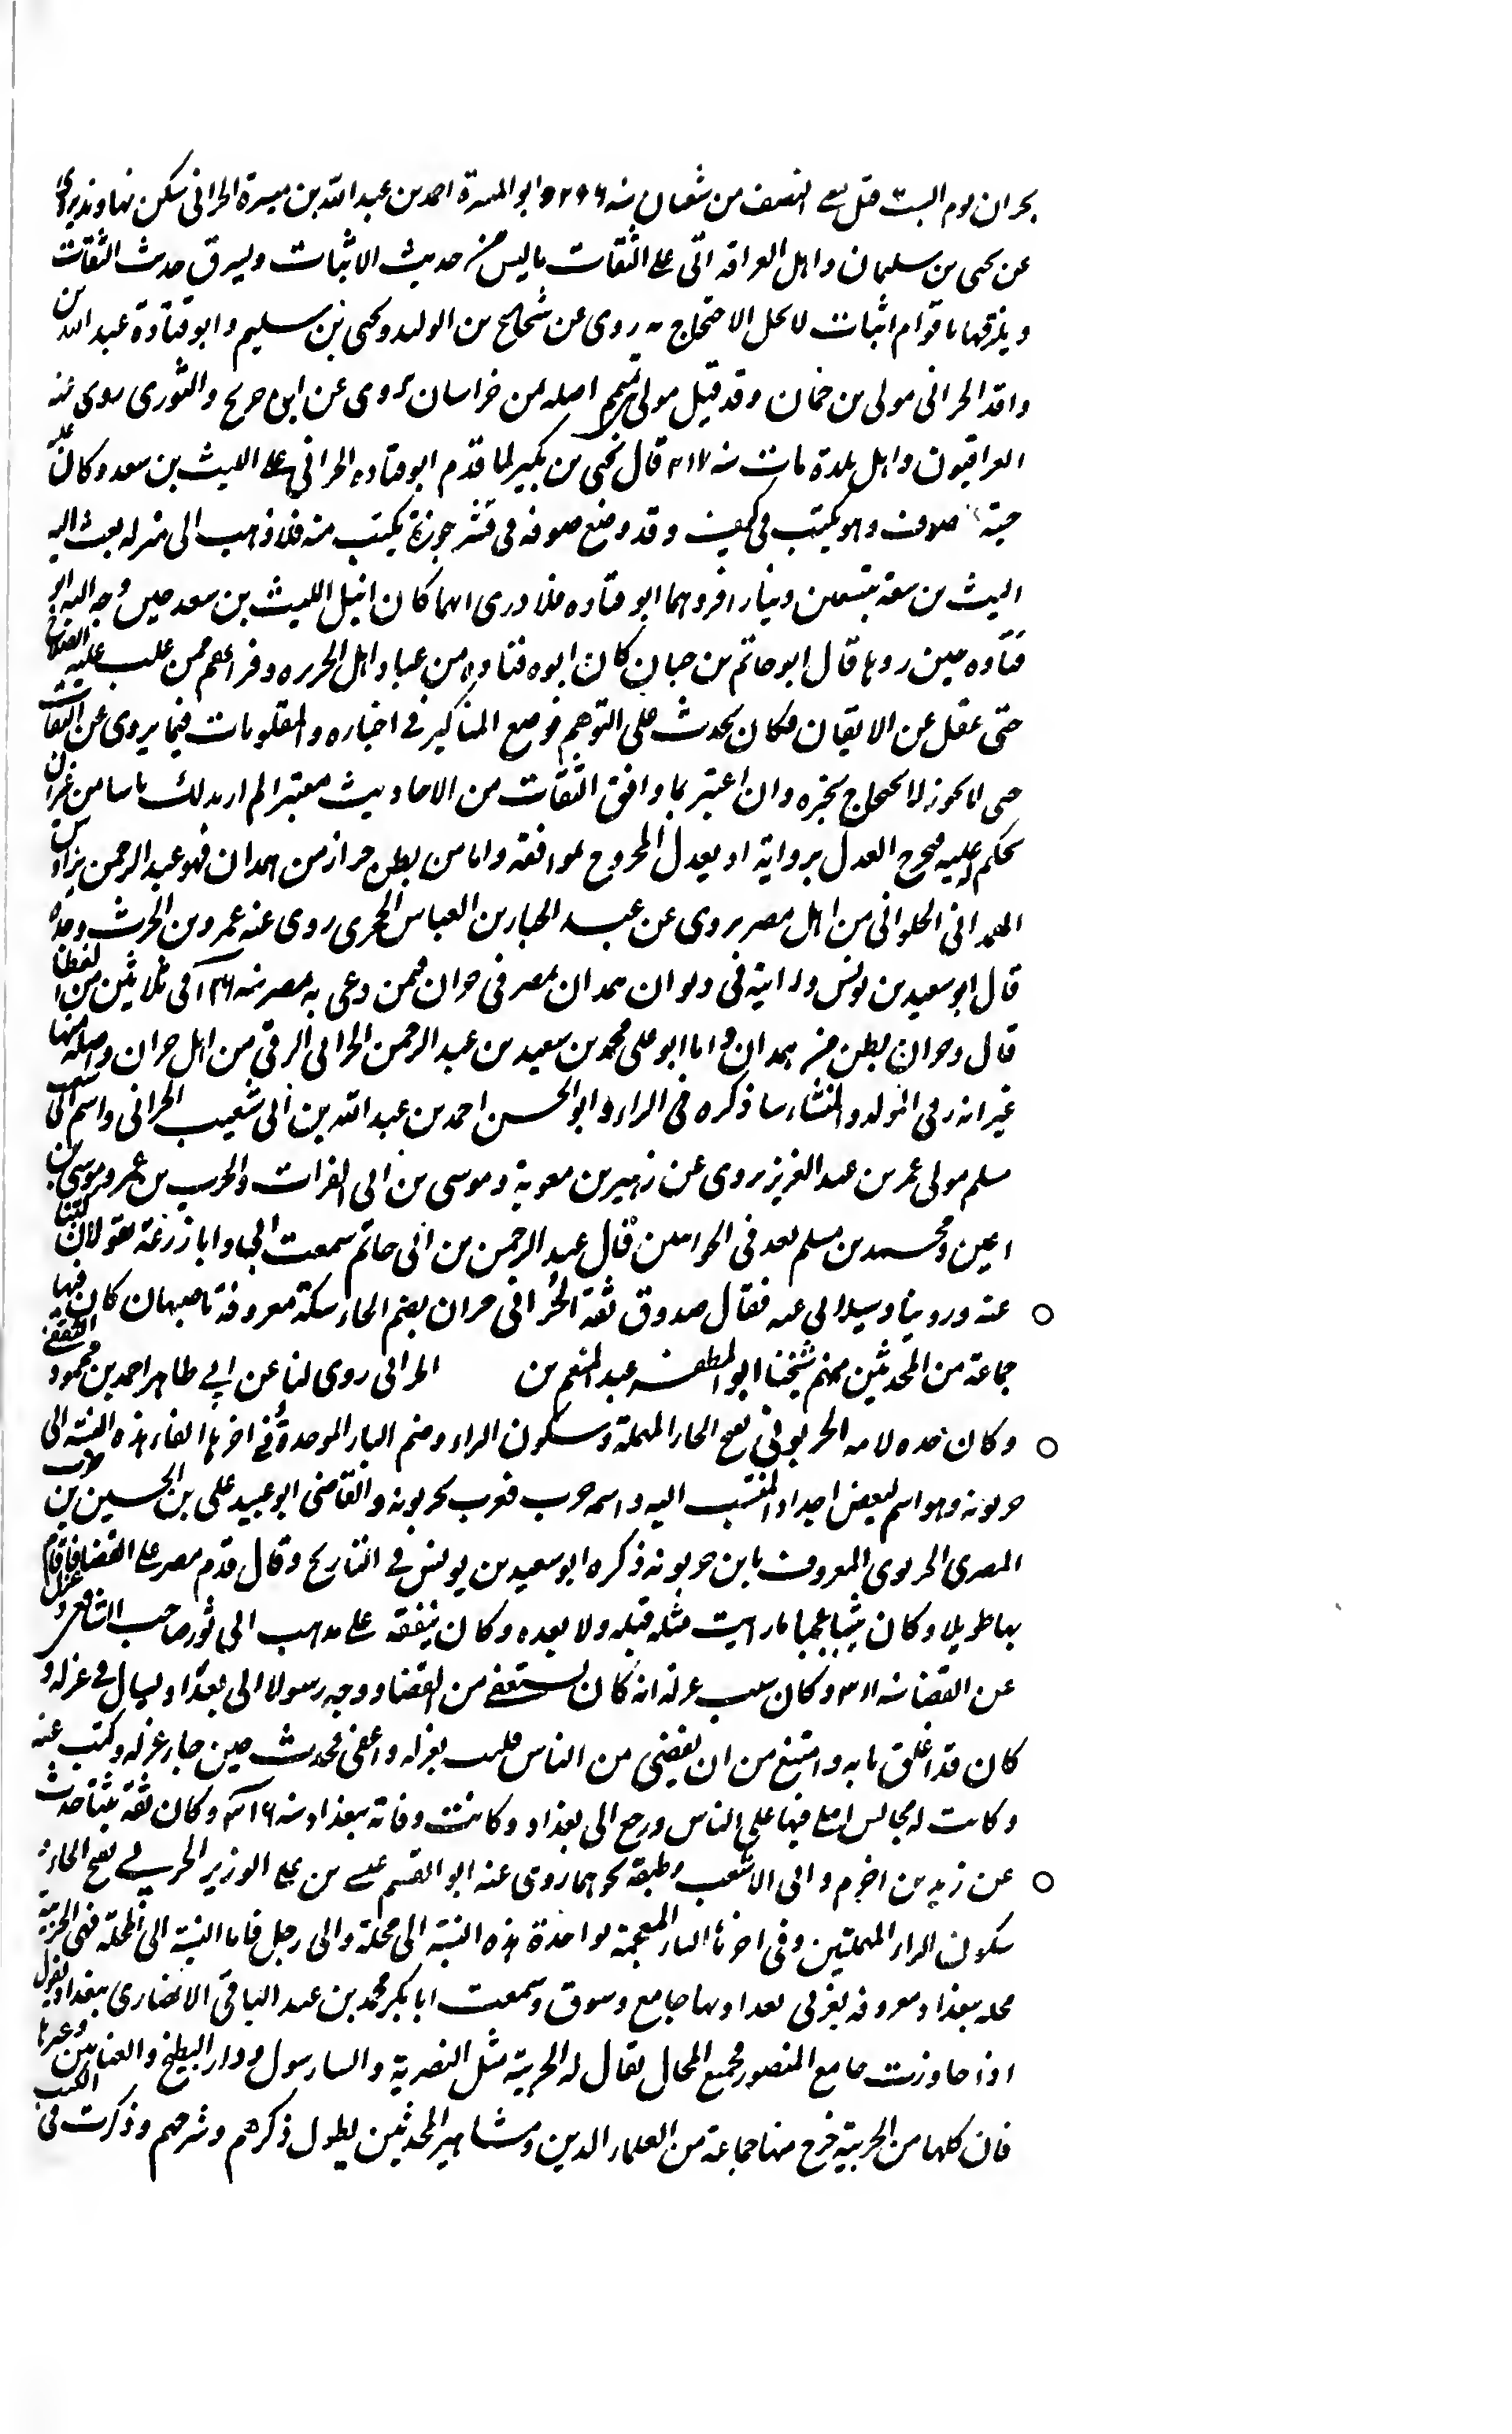 بحران يوم السبت قبل النصف من شعبان سنه ۲۹۶ وابو المسرة احمد بن عبد الله بن ميسرة الحرانى سكن نهاوند يروى
عن يحيى بن سليمان واهل العراق اتى على الثقات ما ليس من حديث الاثبات ويسرق حديث الثقات
ويلزقها باقوام اثبات لا يحل الاحتجاج به روى عن شجاع بن الوليد ويحيى بن سليم وابو قتادة عبد الله بن
واقد الحرانى مولى بن حمان وقد قيل مولى تميم اصله من خراسان يروى عن ابن جريج والثورى روى عنه
العراقيون واهل بلدة مات سنه ۲۱۷ قال يحيى بن بكير لما قدم ابو قتاده الحرانى على الليث بن سعد وكان عليه
جبة صوف وهو يكتب فى كتف وقد وضع صوفه فى قشر جوزة يكتب منه فلما ذهب الى منزله بعث اليه
الليث بن سعد بسبعين دينار افردهما ابو قتاده فلا ادرى ايهما كان انبل الليث بن سعد حين وجه اليه او
قتاده حين ردها قال ابو حاتم بن حبان كان ابو قتاده من عباد اهل الجزيره وقرائهم ممن غلب عليه الصلاح
حتى غفل عن الاتقان فكان يحدث على التوهم فوقع المناكير فى اخباره والمقلوبات فيما يروى عن الثقات
حى لا يجوز الاحتجاج بخبره وان اعتبر بما وافق الثقات من الاحاديث معتبر الم ار بذلك باسا من غير ان
يحكم عليه فيجرح العدل بروايته او يعدل المجروح لموافقته واما من بطن حران من همدان فهو عبد الرحمن بن اوس
الهمدانى الحلوانى من اهل مصر يروى عن عبد الجبار بن العباس الحجرى روى عنه عمرو بن الحرث وحده
قال ابو سعيد بن يونس ورايته فى ديوان همدان بمصر فى حران فيمن دعى به بمصر سنه ۱۲۶ فى ثلاثين من العطا
قال وحران بطن من همدان واما ابو على محمد بن سعيد بن عبد الرحمن الحرانى الرقى من اهل حران واصله منها
غير انه رقى المولد والمنشاء سا ذكره فى الراء وابو الحسن احمد بن عبد الله بن ابى شعيب الحرانى واسم ابى شعيب
مسلم مولى عمر بن عبد العزيز يروى عن زهير بن معوية وموسى بن ابى الفرات والحرب بن عمرو موسى بن
اعين ومحمد بن مسلم يعد فى الحرانيين قال عبد الرحمن بن ابى حاتم سمعت ابى وابا زرعة يقولان كتبنا
عنه وروينا وسيل ابى عنه فقال صدوق ثقة الحُرانى حران بضم الحاء سكة معروفة باصبهان كان فيها
جماعة من المحدثين منهم شيخنا ابو المطهر عبد المنعم بن الحرانى روى لنا عن ابى طاهر احمد بن محمود الثقفى
وكان جده لامه الحربونى بفتح الحاء المهملة وسكون الراء وضم الباء الموحدة وفى اخرها الفاء هذه النسبة الى
حربونه وهو اسم لبعض اجداد المنتسب اليه واسمه حرب فعرب بحربونه والقاضى ابو عبيد على بن الحسين بن حرب
المصرى الحربوى المعروف بابن حربونه ذكره ابو سعيد بن يونس فى التاريخ وقال قدم مصر على القضا فاقام
بها طويلا وكان شيا عجبا ما رايت مثله قبله ولا بعده وكان يتفقه على مذهب ابى ثور صاحب الشافعى وعزل
عن القضا سنه ۳۱۱ وكان سبب عزله انه كان يستعفى من القضا ووجه رسولا الى بغداد يسال فى عزله و
كان قد اغلق بابه وامتنع من ان يقضى من الناس فكتب بعزله واعفى فحدث حين جاء عزله وكتب عنه
وكانت له مجالس املى فيها على الناس ورجع الى بغداد وكانت وفاته ببغداد سنه ۳۱۶ وكان ثقة ثبتا حدث
عن زيد بن اخزم وابى الاشعب وطبقة نحوهما روى عنه ابو القسم عيسى بن على الوزير الحربى بفتح الحاء و
سكون الراء المهملتين وفى اخرها الباء المعجمة بواحدة هذه النسبة الى محلة والى رجل فاما النسبة الى المحلة فهى الحربية
محله ببغداد معروفه بغربى بغداد بها جامع وسوق وسمعت ابا بكر محمد بن عبد الباقى الانصارى ببغداد يقول
اذا جاوزت جامع المنصور فجميع المحال يقال له الحربية مثل النصرية والسارسول ودار البطيخ والعنابيين وغيرها
فان كلها من الحربية خرج منها جماعة من العلماء الدين ومشاهير المحدثين يطول ذكرهم وشرحهم وذكرت فى الكتب